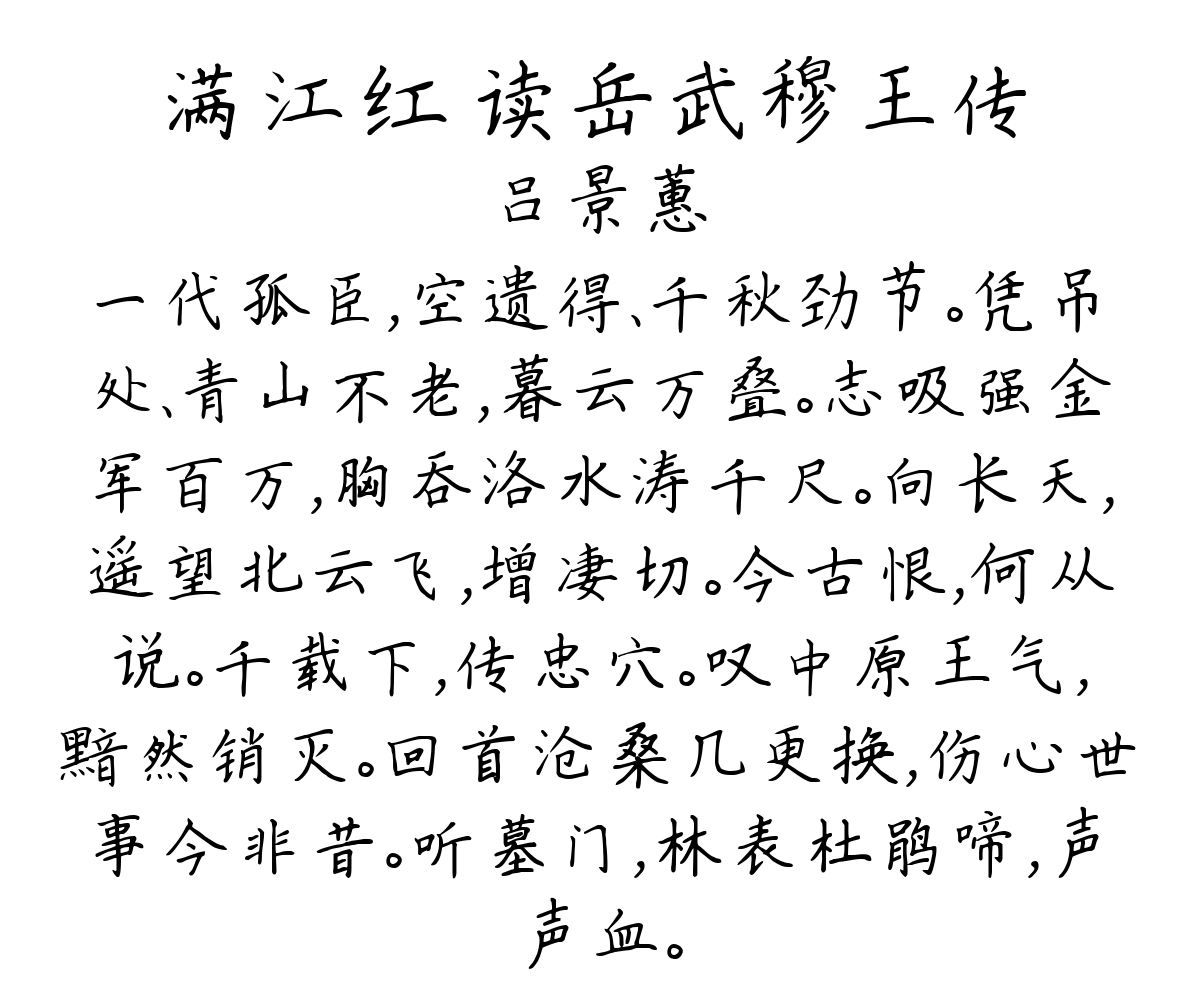 满江红 读岳武穆王传
吕景蕙
一代孤臣,空遗得、千秋劲节。凭吊
处、青山不老,暮云万叠。志吸强金
军百万,胸吞洛水涛千尺。向长天,
遥望北云飞,增凄切。今古恨,何从
说。千载下,传忠穴。叹中原王气,
黯然销灭。回首沧桑几更换,伤心世
事今非昔。听墓门,林表杜鹃啼,声
声血。